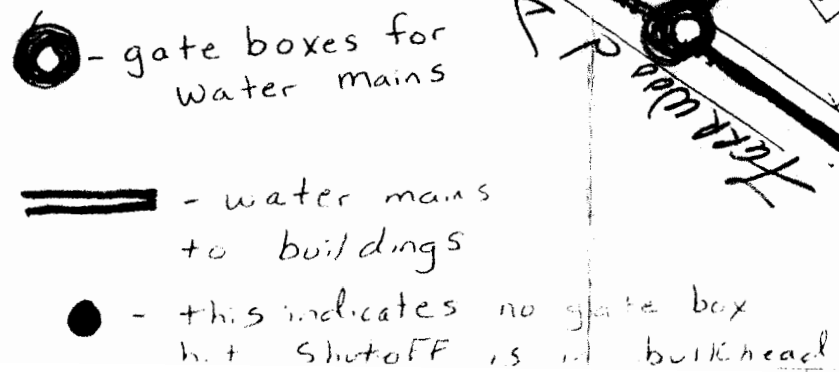 - gate boxes for
water mains
- water mains
to buildings
- this indicates no gate box
but Shutoff is in bulkhead